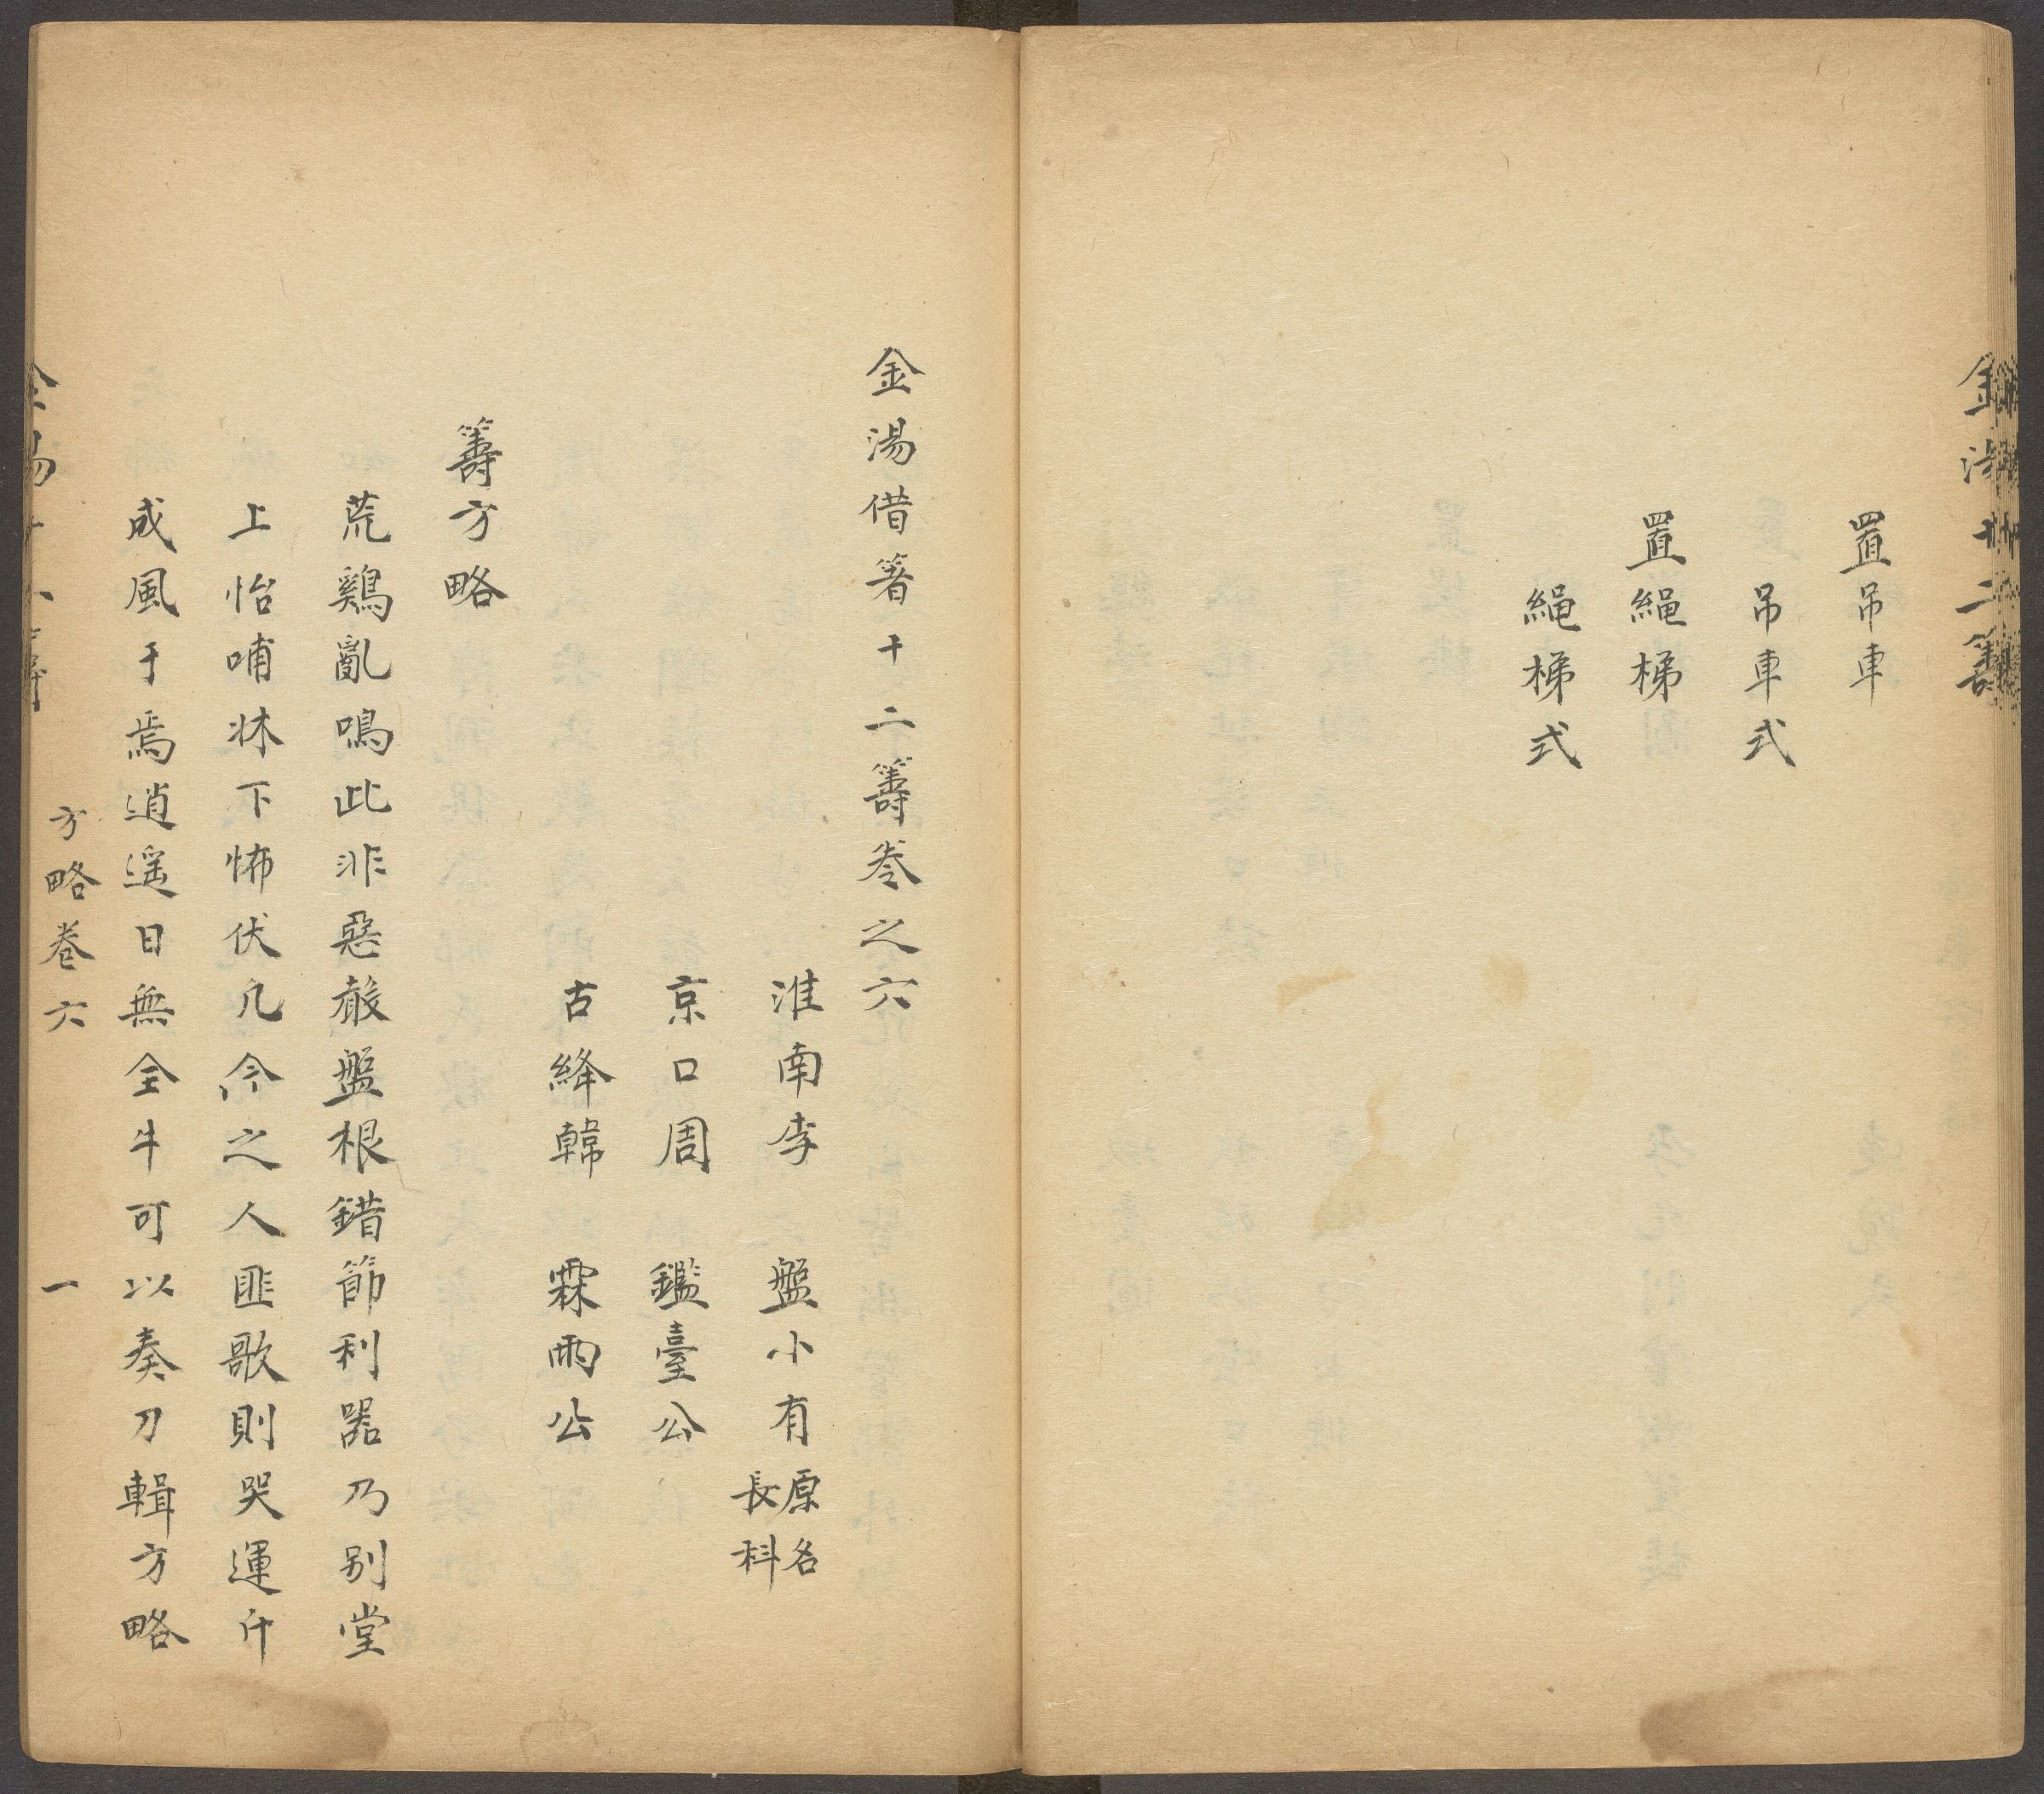 金湯十二籌
置吊車
吊車式
置繩梯
繩梯式
金湯借箸十二籌卷之六
淮南李　盤小有原名長科
京口周　鑑臺公
古絳韓　霖雨公
籌方略
荒鷄亂鳴此非惡聲盤根錯節利噐乃别堂
上怡哺牀下怖伏凢今之人匪歌則哭運斤
成風于焉逍遥目無全牛可以奏刀輯方略
方略卷六
一